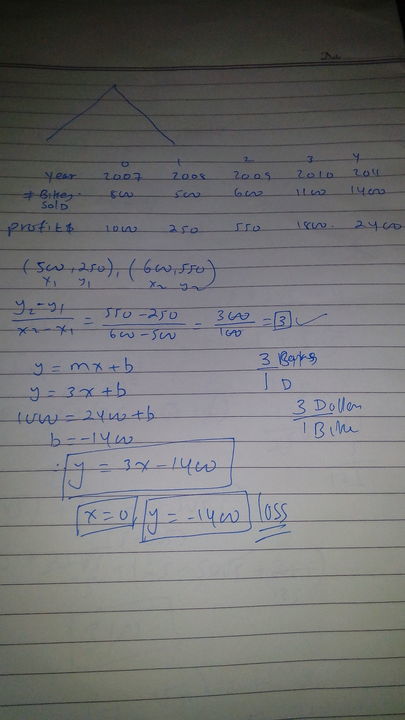 Da
0 1 2 3 4
Year 2007 2008 2009 2010 2011
# Bikes Sold 800 500 600 1100 1400
profit $ 1000 250 550 1800 2400
(500, 250), (600, 550)
x1 y1 x2 y2
y2-y1 / x2-x1 = 550-250 / 600-500 = 300 / 100 = 3 ✓
y = mx + b
3 Bikes / 1 D
y = 3x + b
1000 = 2400 + b
3 Dollar / 1 Bike
b = -1400
∴ y = 3x - 1400
x = 0, y = -1400 loss